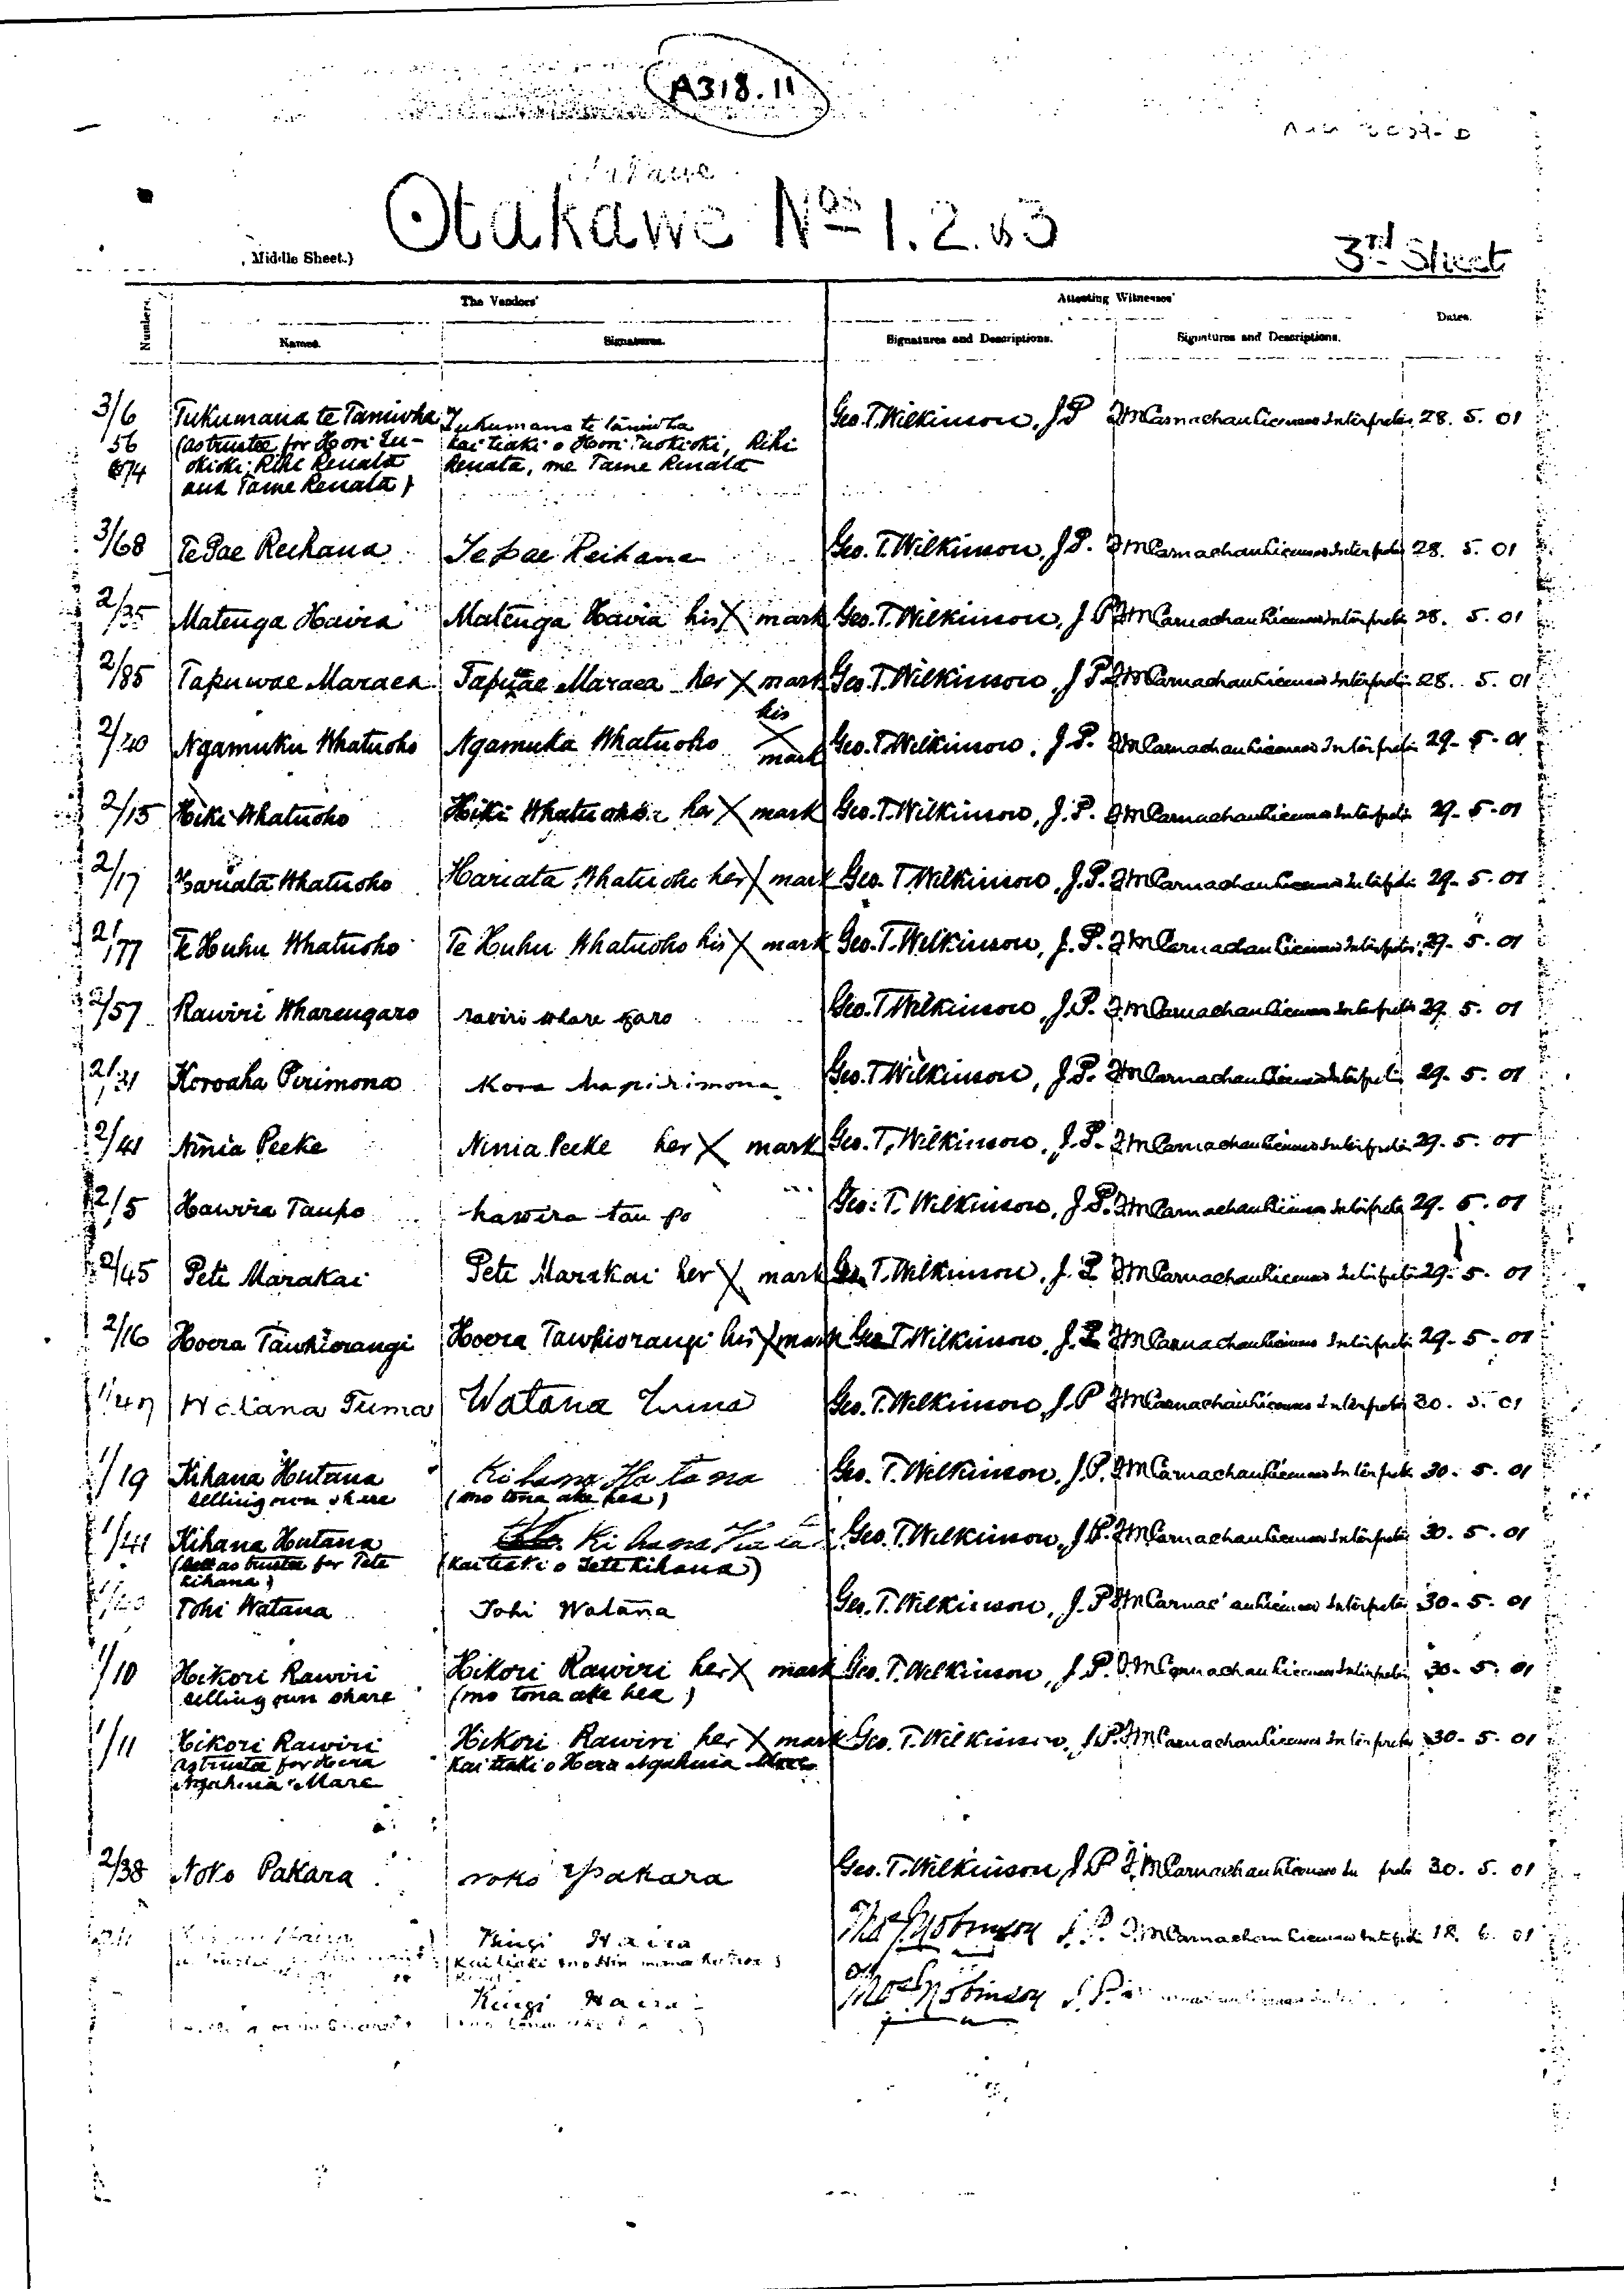 A318.11
Otakawe Nos 1.2.&3
(Middle Sheet.)
3rd Sheet
Numbers.
The Vendors'
Attesting Witnesses'
Names.
Signatures.
Signatures and Descriptions.
Signatures and Descriptions.
Dates.
3/6 Tukumana te Taniwha Tukumana te taniwha Geo. T. Wilkinson, J P Licensed Interpreter 28. 5. 01
56 (as trustee for Hori Tu- kaitiaki o Hori Tuokioki, Riki
&74 okioki, Riki Renata Renata, me Tame Renata
and Tame Renata)
3/68 Te Pae Reihana Te pae Reihana Geo. T. Wilkinson, J.P. Licensed Interpreter 28. 5. 01
2/35 Matenga Havia Matenga Havia his X mark Geo. T. Wilkinson, J P Licensed Interpreter 28. 5. 01
2/85 Tapuwae Maraea Tapuae Maraea her X mark Geo. T. Wilkinson, J P Licensed Interpreter 28. 5. 01
2/20 Ngamuku Whatuoho Ngamuka Whatuoho his X mark Geo. T. Wilkinson, J.P. Licensed Interpreter 29-5-01
2/15 Hiki Whatuoho Hiki Whatuoho her X mark Geo. T. Wilkinson, J.P. Licensed Interpreter 29-5-01
2/17 Hariata Whatuoho Hariata Whatuoho her X mark Geo. T. Wilkinson, J.P. Licensed Interpreter 29-5-01
2/77 Te Huhu Whatuoho Te Huhu Whatuoho his X mark Geo. T. Wilkinson, J.P. Licensed Interpreter 29-5-01
2/57 Rawiri Wharengaro raviri whare garo Geo. T. Wilkinson, J.P. Licensed Interpreter 29. 5. 01
2/21 Koroaha Pirimona Kora ha pirimona Geo. T. Wilkinson, J.P. Licensed Interpreter 29-5-01
2/41 Ninia Peeke Ninia Peeke her X mark Geo. T. Wilkinson, J.P. Licensed Interpreter 29-5-01
2/5 Hawira Taupo hawira tau po Geo. T. Wilkinson, J.P. Licensed Interpreter 29-5-01
2/45 Pete Marakai Pete Marakai her X mark Geo. T. Wilkinson, J.P. Licensed Interpreter 29-5-01
2/16 Hoera Tawhiorangi Hoera Tawhiorangi his X mark Geo T. Wilkinson, J.P. Licensed Interpreter 29-5-01
1/47 Watana Tuma Watana Tuma Geo. T. Wilkinson, J.P Licensed Interpreter 30. 5. 01
1/19 Kihana Hutana Kihana Hutana Geo. T. Wilkinson, J.P. Licensed Interpreter 30. 5. 01
selling own share (mo tona ake hea)
1/41 Kihana Hutana Kihana Geo. T. Wilkinson, J.P. Licensed Interpreter 30. 5. 01
as trustee for Tete (kaitiaki o Tete Kihana)
Kihana)
Tohi Watana Tohi Watana Geo. T. Wilkinson, J.P Licensed Interpreter 30-5-01
1/10 Hikori Rawiri Hikori Rawiri her X mark Geo. T. Wilkinson, J.P. Licensed Interpreter 30-5-01
selling own share (mo tona ake hea)
1/11 Hikori Rawiri Hikori Rawiri her X mark Geo. T. Wilkinson, J.P. Licensed Interpreter 30-5-01
as trustee for Hera kaitiaki o Hera Ngahuia Mare
Ngahuia Mare
2/38 Noko Pakara noko Pakara Geo. T. Wilkinson, J.P 30. 5. 01
Kingi Haira Robinson J.P. Licensed 12. 6. 01
Kingi Haira Robinson J.P.